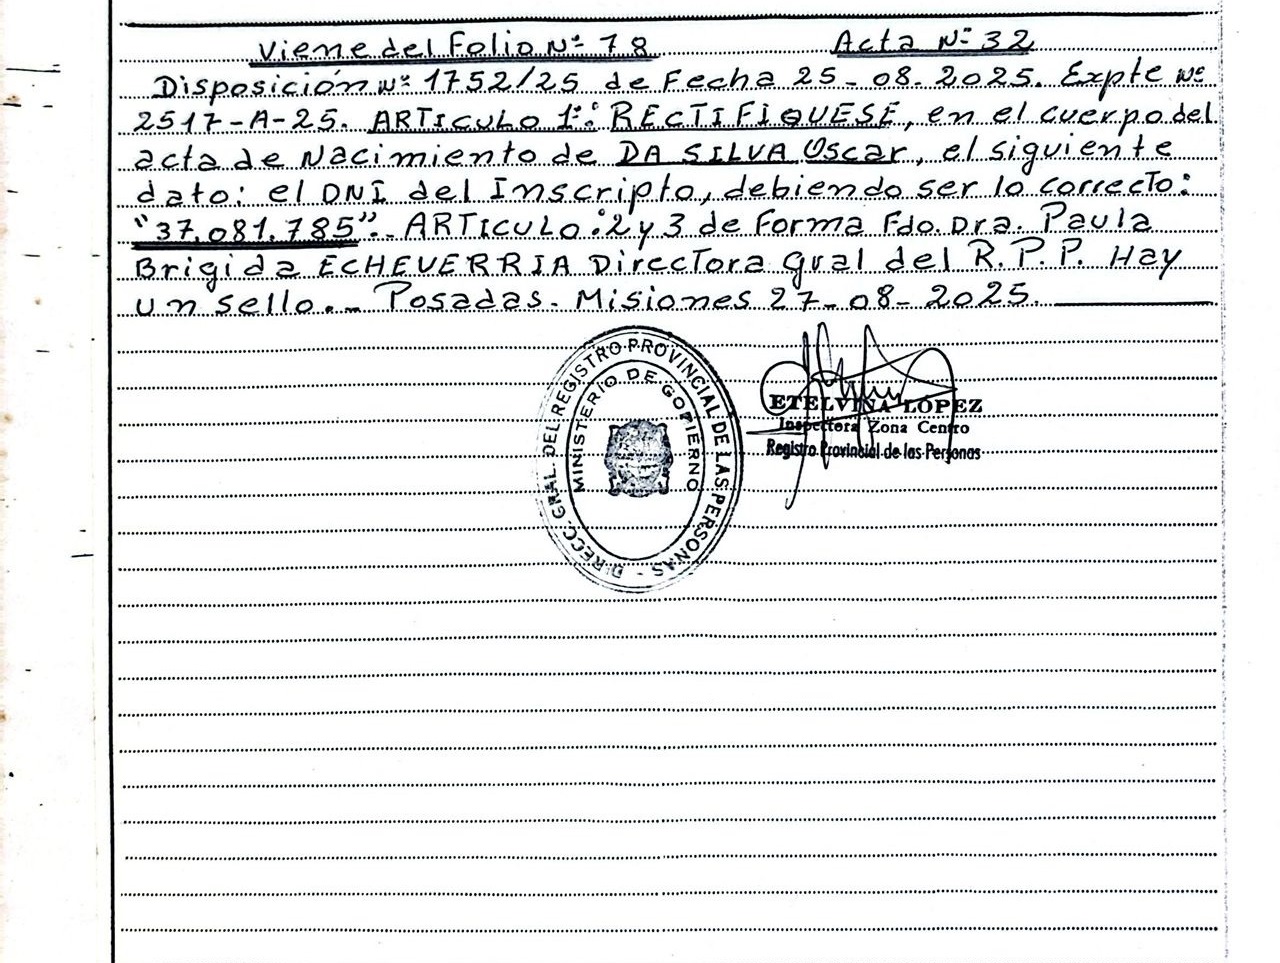 Viene del Folio Nº 78 Acta Nº 32
Disposición Nº 1752/25 de Fecha 25-08-2025. Expte Nº
2517-A-25. ARTICULO 1º: RECTIFIQUESE, en el cuerpo del
acta de Nacimiento de DA SILVA Oscar, el siguiente
dato: el DNI del Inscripto, debiendo ser lo correcto:
"37.081.785".- ARTICULO:2 y 3 de Forma Fdo. Dra. Paula
Brigida ECHEVERRIA Directora Gral del R.P.P. Hay
un sello.- Posadas- Misiones 27-08-2025.
DIRECC. GRAL. DEL REGISTRO PROVINCIAL DE LAS PERSONAS -
MINISTERIO DE GOBIERNO
ETELVINA LOPEZ
Inspectora Zona Centro
Registro Provincial de las Personas